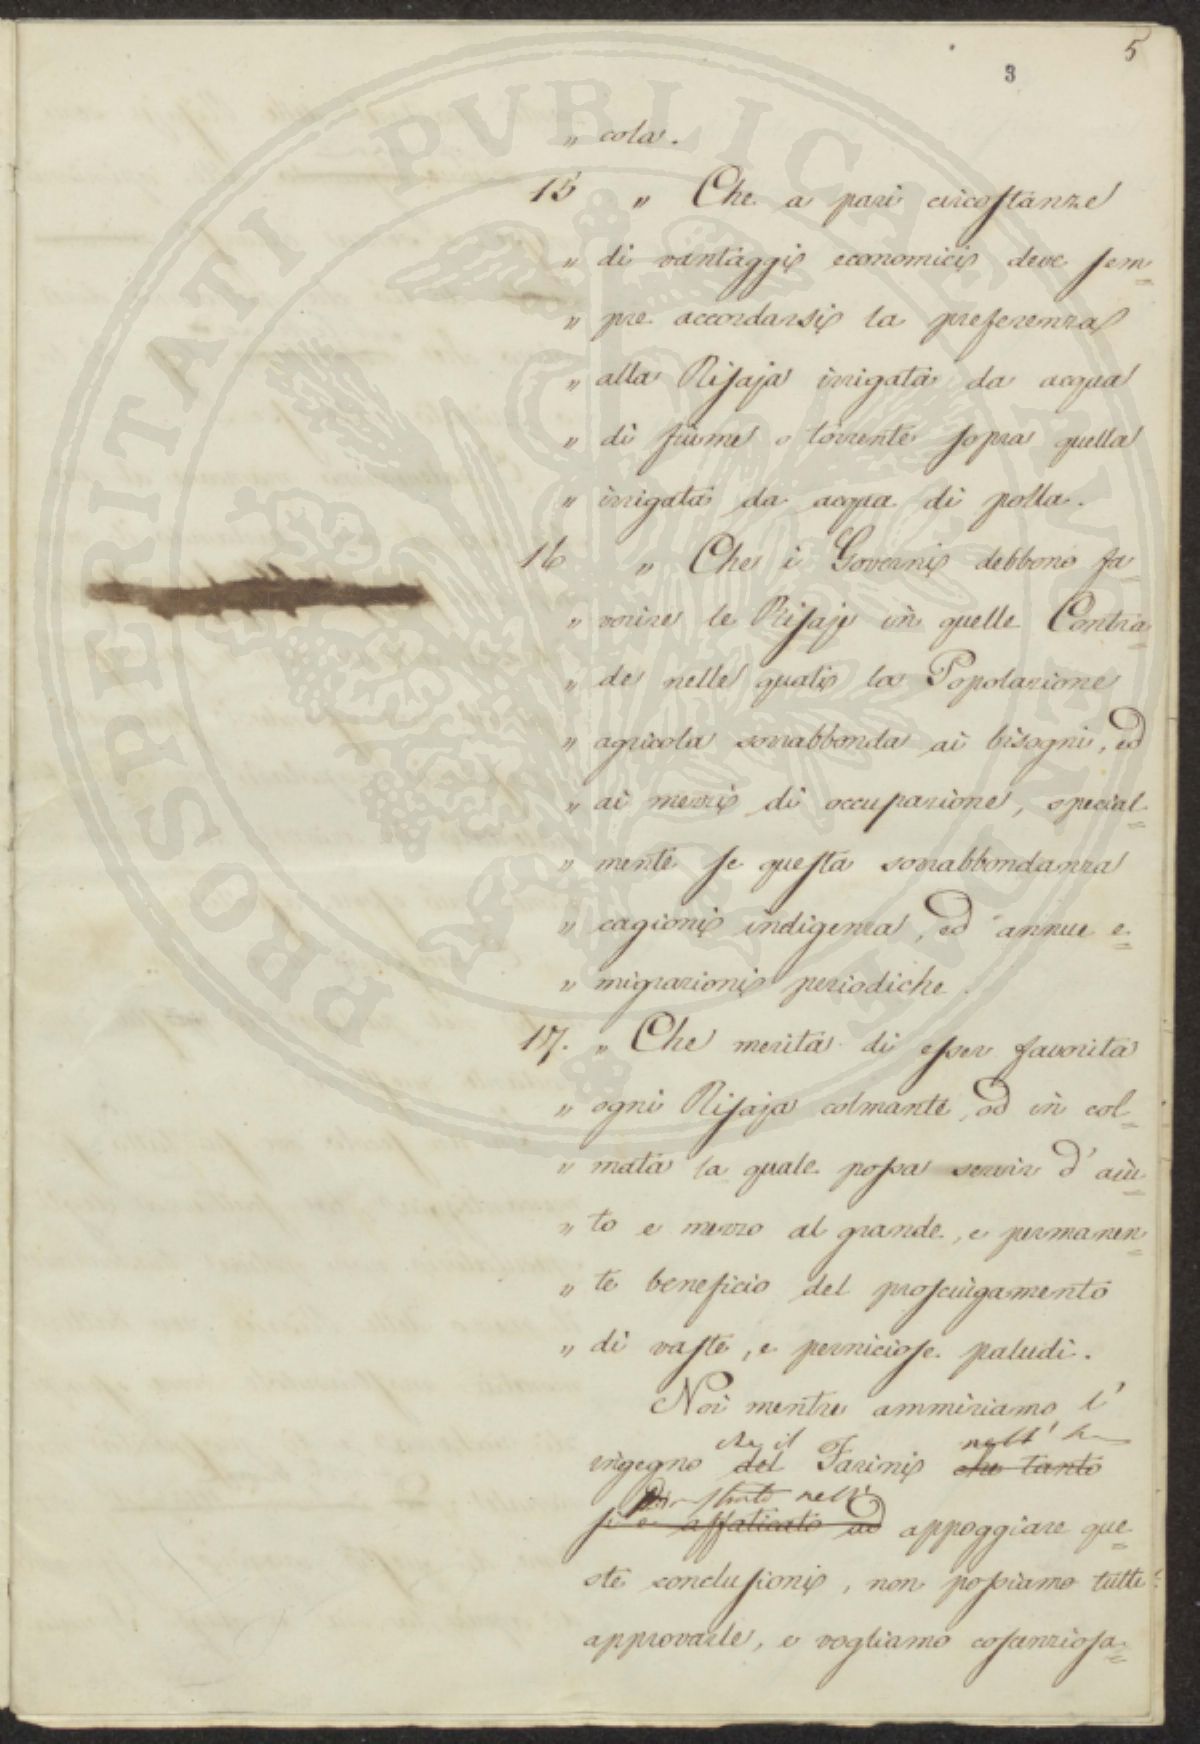 5
3
„ cola.
15 „ Che a pari circostanze
„ di vantaggi economici deve sem=
„ pre accordarsi la preferenza
„ alla Risaja irrigata da acqua
„ di fiume o torrente sopra quella
„ irrigata da acqua di polla.
16 „ Che i Governi debbono fa=
„ vorire le Risaje in quelle Contra=
„ de nelle quali la Popolazione
„ agricola sovrabbonda ai bisogni, ed
„ ai mezzi di occupazione, special=
„ mente se questa sovrabbondanza
„ cagioni indigenza, ed annue e=
„ migrazioni periodiche.
17. „ Che merita di esser favorita
„ ogni Risaja colmante, od in col=
„ mata la quale possa servir d'aiu=
„ to e mezzo al grande, e permanen=
„ te beneficio del prosciugamento
„ di vaste, e perniciose paludi.
Noi mentre ammiriamo l'
che il nell'
ingegno del Farini che tanto
nell'
si è affaticato ad appoggiare que=
ste conclusioni, non possiamo tutte
approvarle, e vogliamo coscenziosa=
PROSPERITATI PVBLICAE